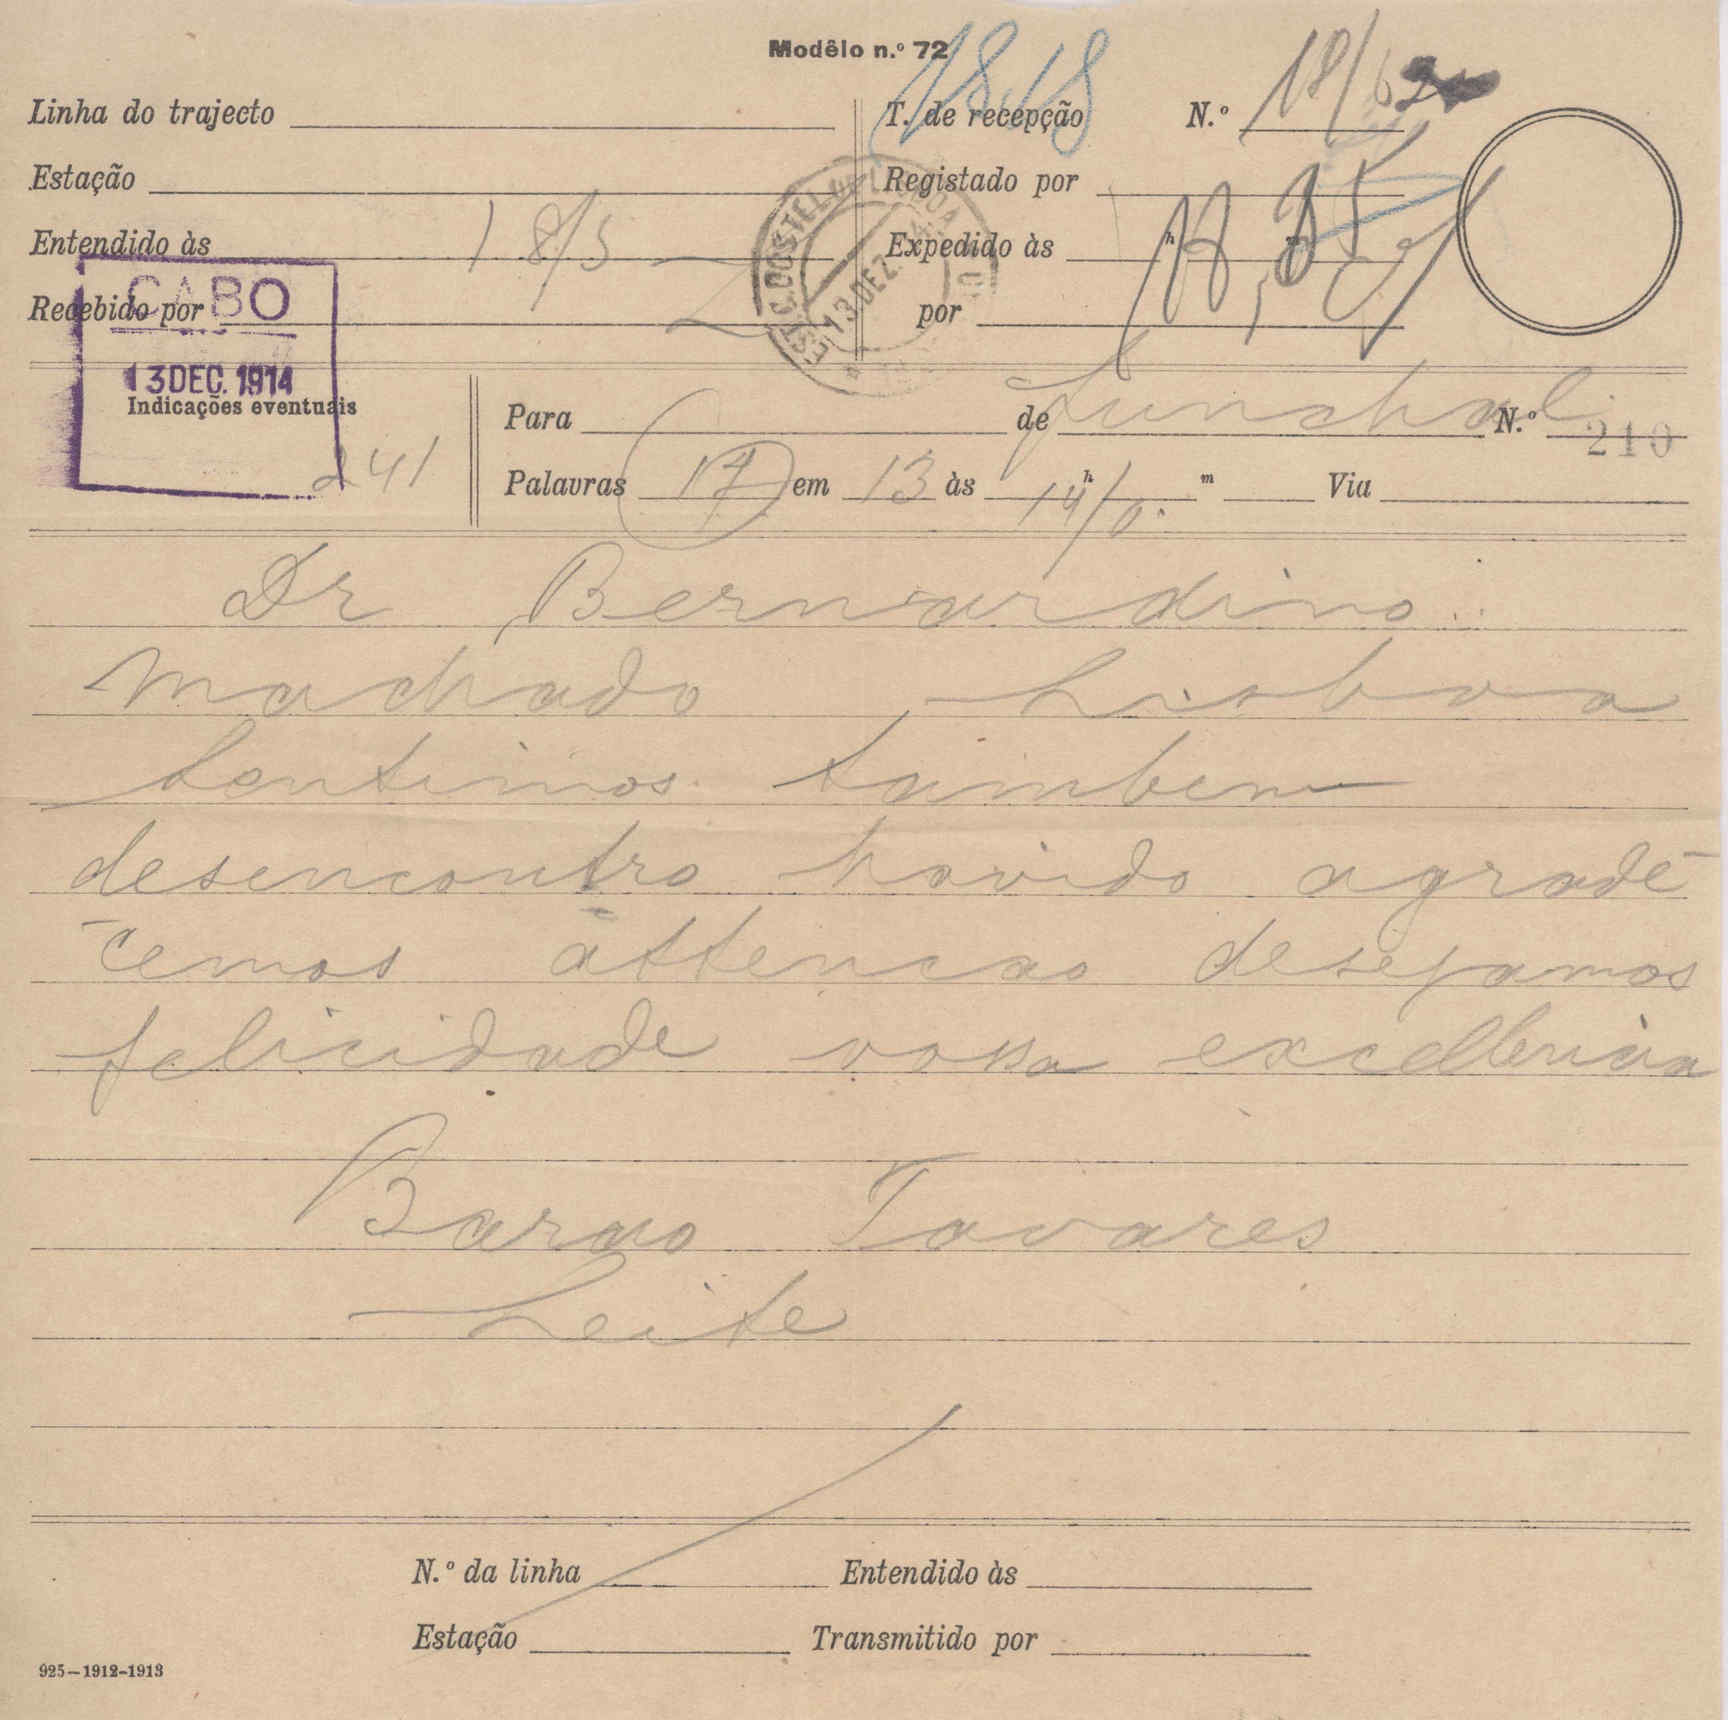 Modêlo n.º 72
1818
Linha do trajecto
T. de recepção
N.º 18/6
Estação
Registado por
Entendido às 18/5
Expedido às h m
Recebido por
por
CABO
13 DEC. 1914
EST. C. DOS TEL.
13 DEZ.
Indicações eventuais
241
Para de Funchal N.º 210
Palavras 17 em 13 às 14 h/0 m Via
Dr Bernardino
Machado Lisboa
Sentimos tambem
desencontro havido agrade-
-cemos attencao desejamos
felicidade vossa excellencia
Barao Tavares
Leite
N.º da linha
Entendido às
Estação
Transmitido por
925-1912-1913